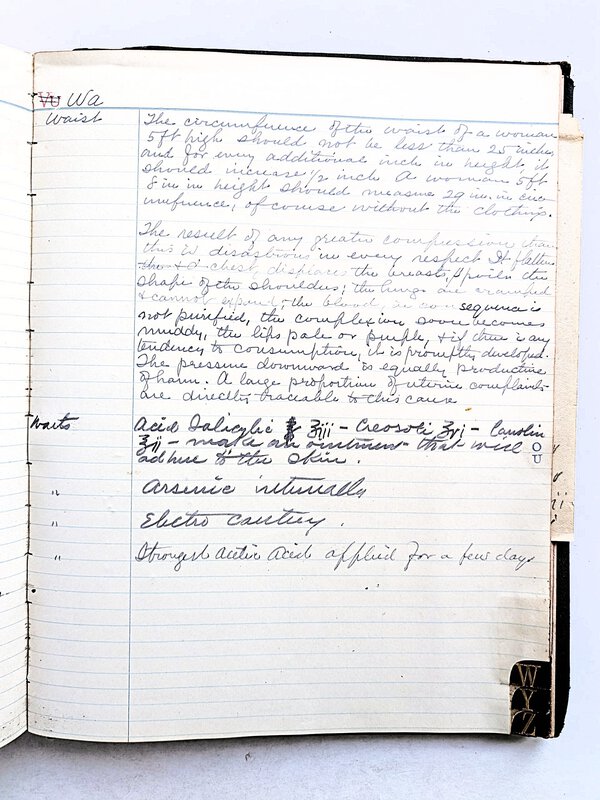 VU Wa
Waist The circumference of the waist of a woman
5ft high should not be less than 25 inches
and for every additional inch in height it
should increase 1/2 inch A woman 5ft
8 in in height should measure 29 in. in circu
mference, of course without the clothing.
The result of any greater compression than
this is disastrous in every respect It flattens
the chest, displaces the breasts, spoils the
shape of the shoulders; the lungs are cramped
& cannot expand; the blood in consequence is
not purified, the complexion soon becomes
muddy, the lips pale or purple, & if there is any
tendency to consumption, it is promptly developed.
The pressure downward is equally productive
of harm. A large proportion of uterine complaints
are directly traceable to this cause
Warts Acid Salicylic ʒiii – Creosoti ʒvi –
ʒii – make an ointment that will
adhere to the skin.
" Arsenic internally
" Electro cautery.
" Strongest Acetic Acid applied for a few days
O
U
W
Y
Z